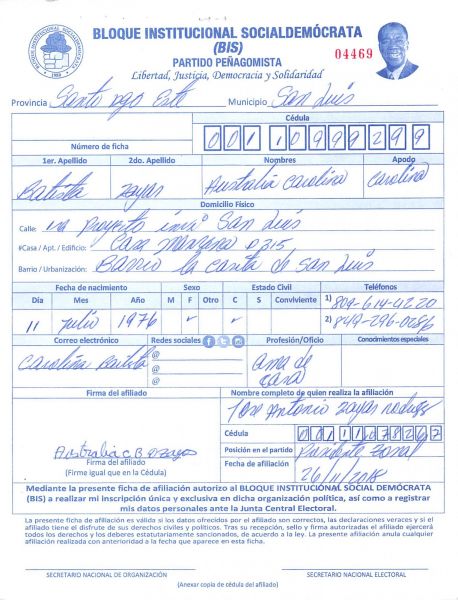 BLOQUE INSTITUCIONAL SOCIALDEMÓCRATA
(BIS)
PARTIDO PEÑAGOMISTA
Libertad, Justicia, Democracia y Solidaridad
04469
Provincia Santo Dgo Este Municipio San Luis
Cédula
Número de ficha
1er. Apellido 2do. Apellido Nombres Apodo
Batista Zayas Australia Carolina Carolina
Domicilio Físico
Calle: San Luis
#Casa / Apt. / Edificio: Casa Manzana
Barrio / Urbanización: Barrio la de San Luis
Fecha de nacimiento Sexo Estado Civil Teléfonos
Día Mes Año M F Otro C S Conviviente
1) 809-614-4220
11 julio 1976
2) 849-296-0286
Correo electrónico Redes sociales Profesión/Oficio Conocimientos especiales
Carolina Batista @ ama de casa
@
@
Firma del afiliado Nombre completo de quien realiza la afiliación
Jose Antonio Zayas
Cédula
Australia C B Zayas Posición en el partido Presidente Zonal
Firma del afiliado
(Firme igual que en la Cédula)
Fecha de afiliación 26/11/2018
Mediante la presente ficha de afiliación autorizo al BLOQUE INSTITUCIONAL SOCIAL DEMÓCRATA
(BIS) a realizar mi inscripción única y exclusiva en dicha organización política, así como a registrar
mis datos personales ante la Junta Central Electoral.
La presente ficha de afiliación es válida si los datos ofrecidos por el afiliado son correctos, las declaraciones veraces y si el
afiliado tiene el disfrute de sus derechos civiles y políticos. Tras su recepción, sello y firma autorizadas el afiliado ejercerá
todos los derechos y los deberes estatutariamente sancionados, de acuerdo a la ley. La presente afiliación anula cualquier
afiliación realizada con anterioridad a la fecha que aparece en esta ficha.
SECRETARIO NACIONAL DE ORGANIZACIÓN SECRETARIO NACIONAL ELECTORAL
(Anexar copia de cédula del afiliado)